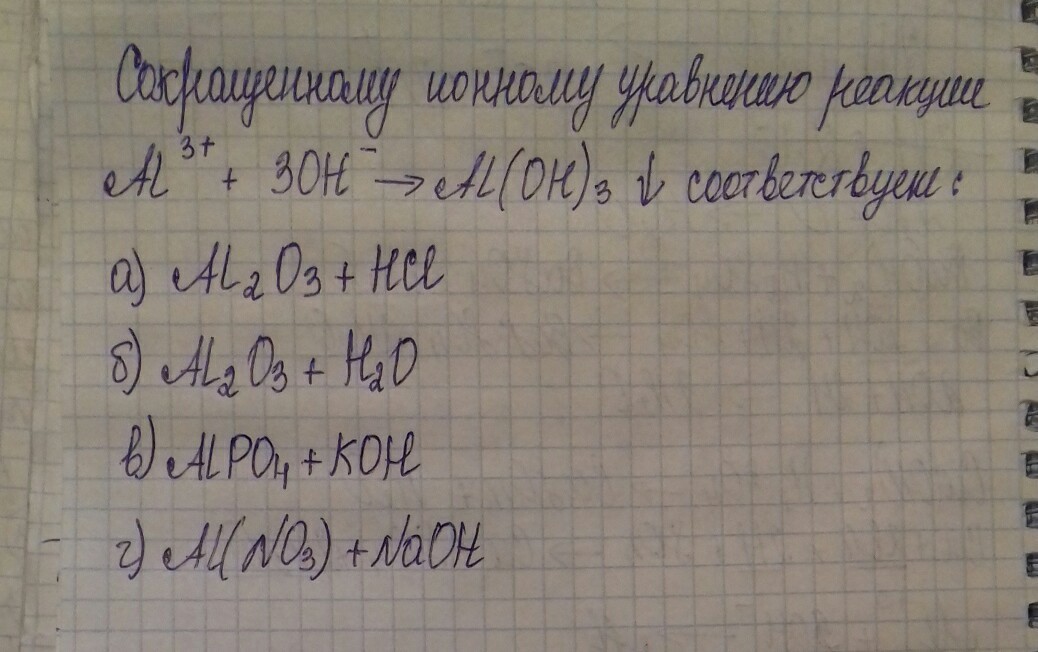 Сокращенному ионному уравнению реакции
Al³⁺ + 3OH⁻ → Al(OH)₃ ↓ соответствует:
а) Al₂O₃ + HCl
б) Al₂O₃ + H₂O
в) AlPO₄ + KOH
г) Al(NO₃) + NaOH